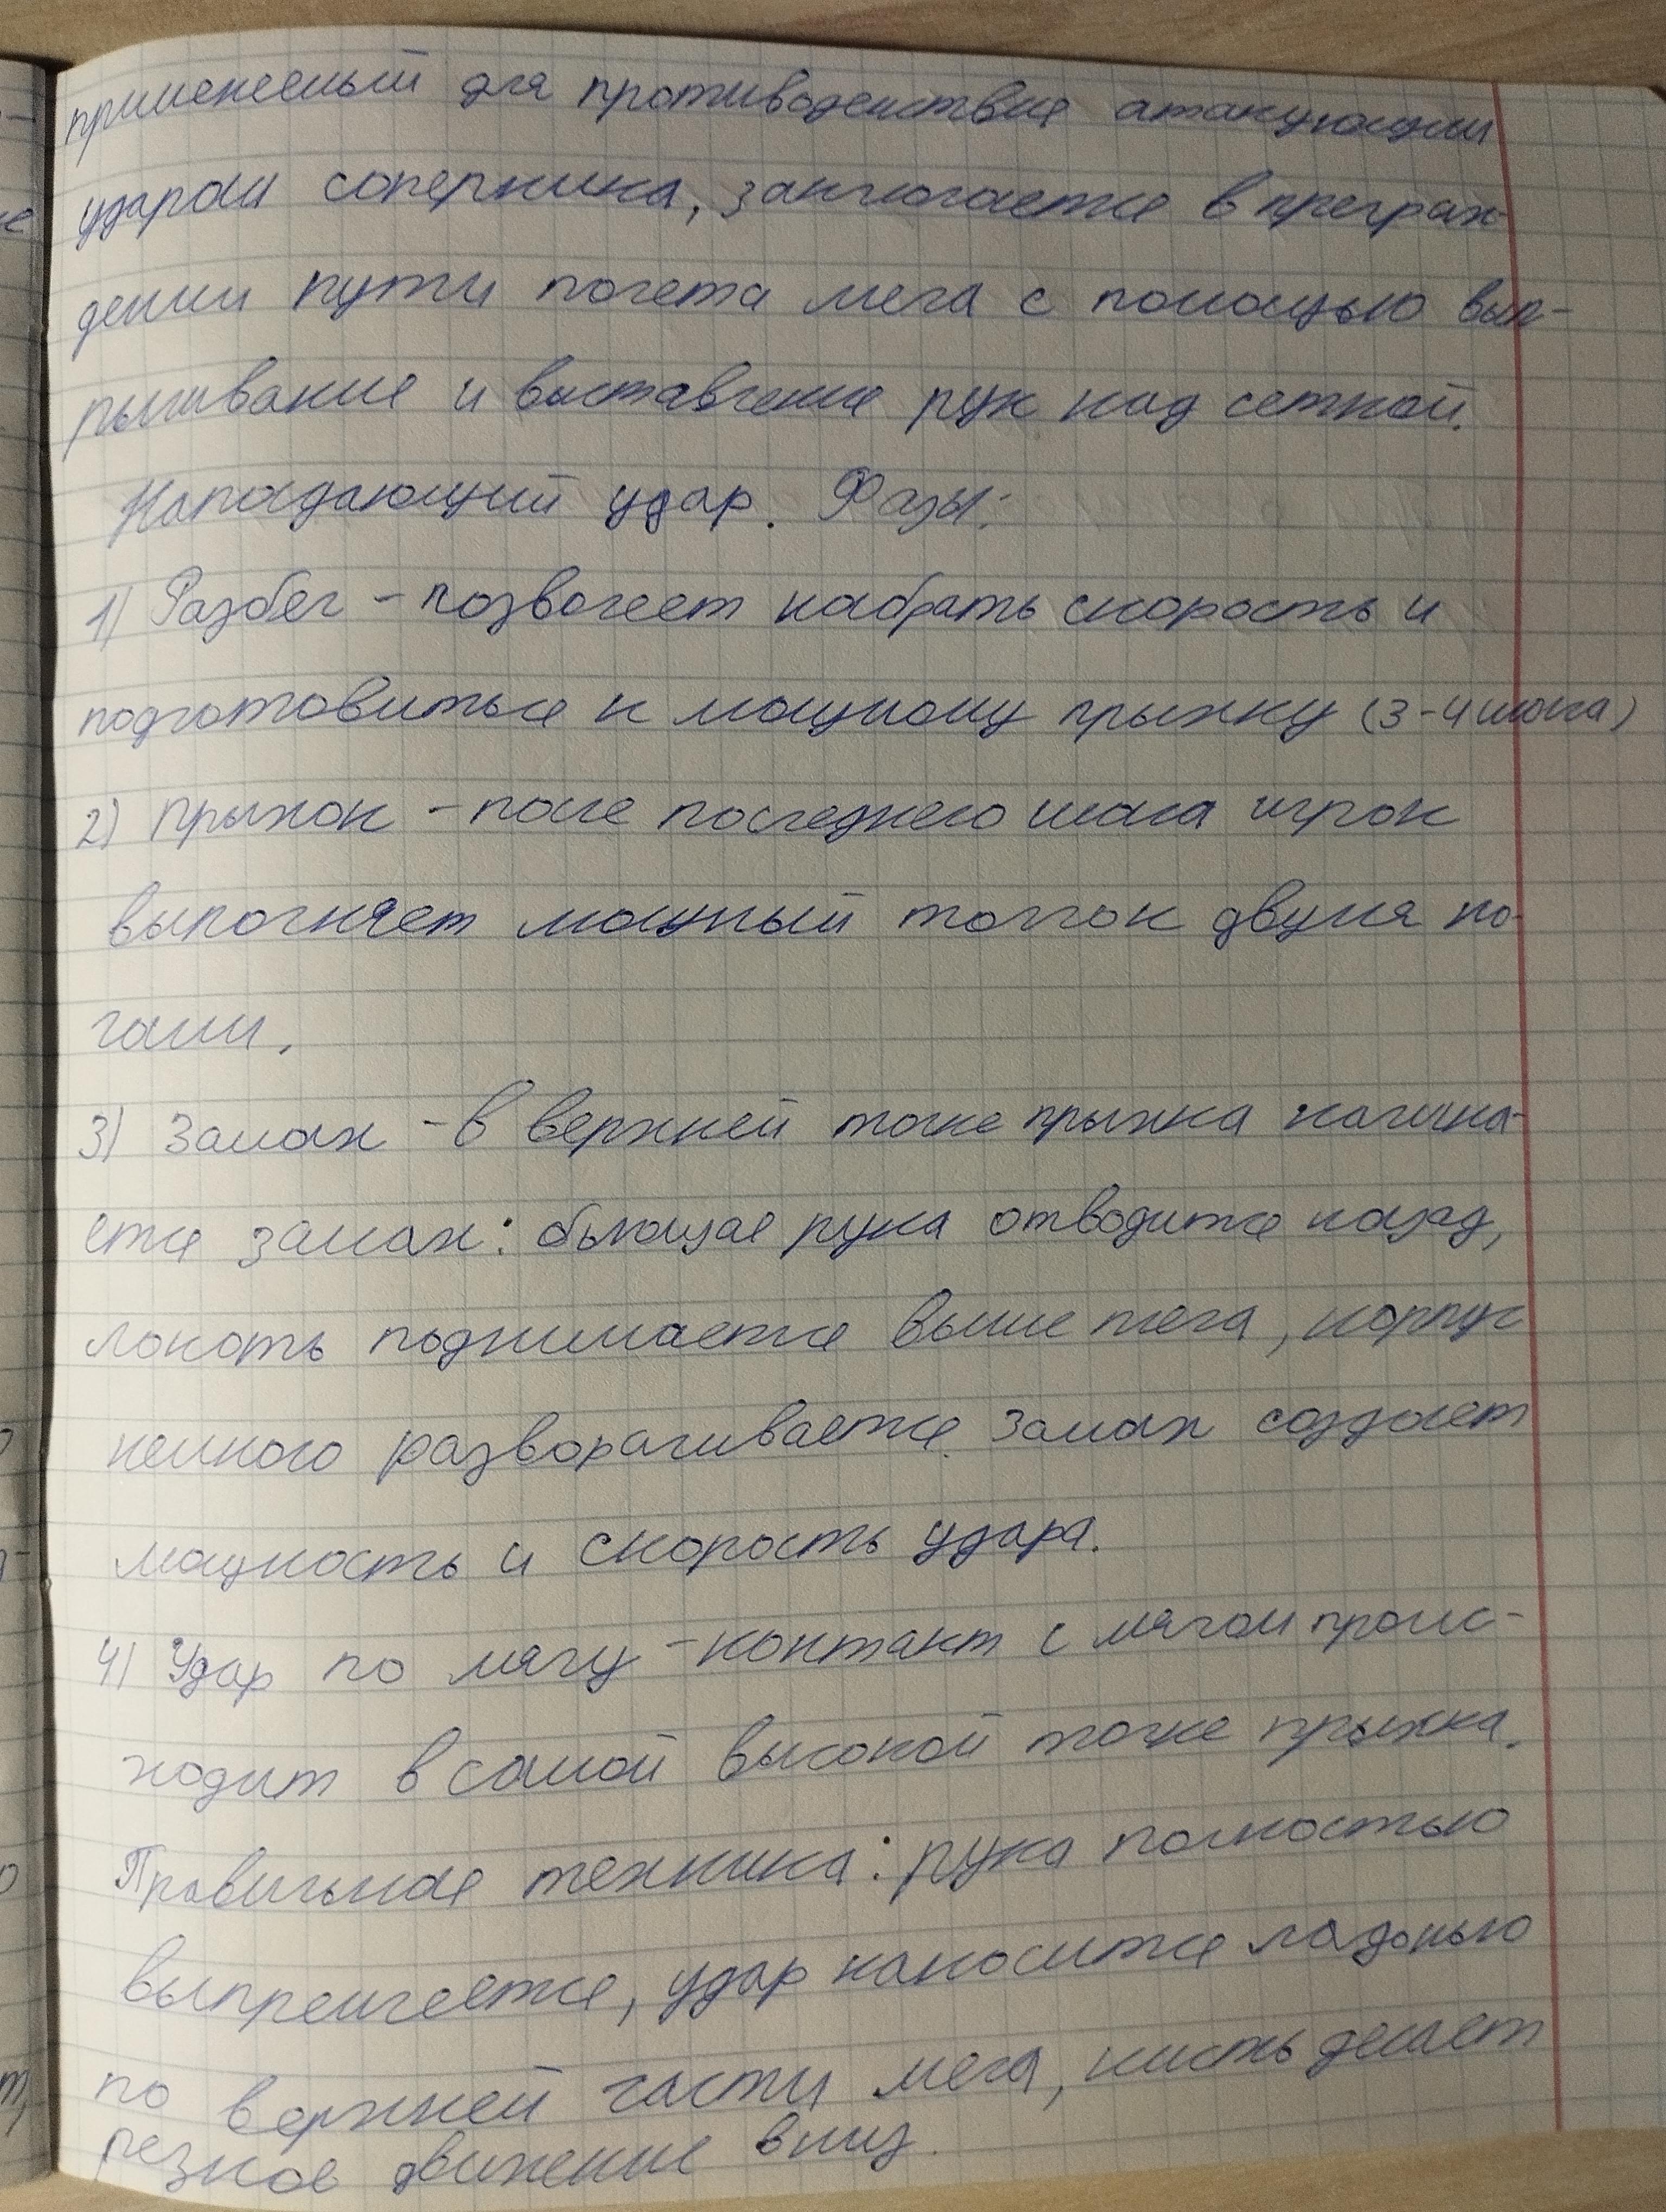 применяемый для противодействия атакующим
ударам соперника, заключается в преграж-
дении пути полета мяча с помощью вып-
рыгивания и выставления рук над сеткой.
Нападающий удар. Фазы:
1) Разбег - позволяет набрать скорость и
подготовиться к мощному прыжку (3-4 шага)
2) Прыжок - после последнего шага игрок
выполняет мощный толчок двумя но-
гами.
3) Замах - в верхней точке прыжка начина-
ется замах: бьющая рука отводится назад,
локоть поднимается выше плеча, корпус
немного разворачивается. Замах создает
мощность и скорость удара.
4) Удар по мячу - контакт с мячом проис-
ходит в самой высокой точке прыжка.
Правильная техника: рука полностью
выпрямляется, удар наносится ладонью
по верхней части мяча, кисть делает
резкое движение вниз.